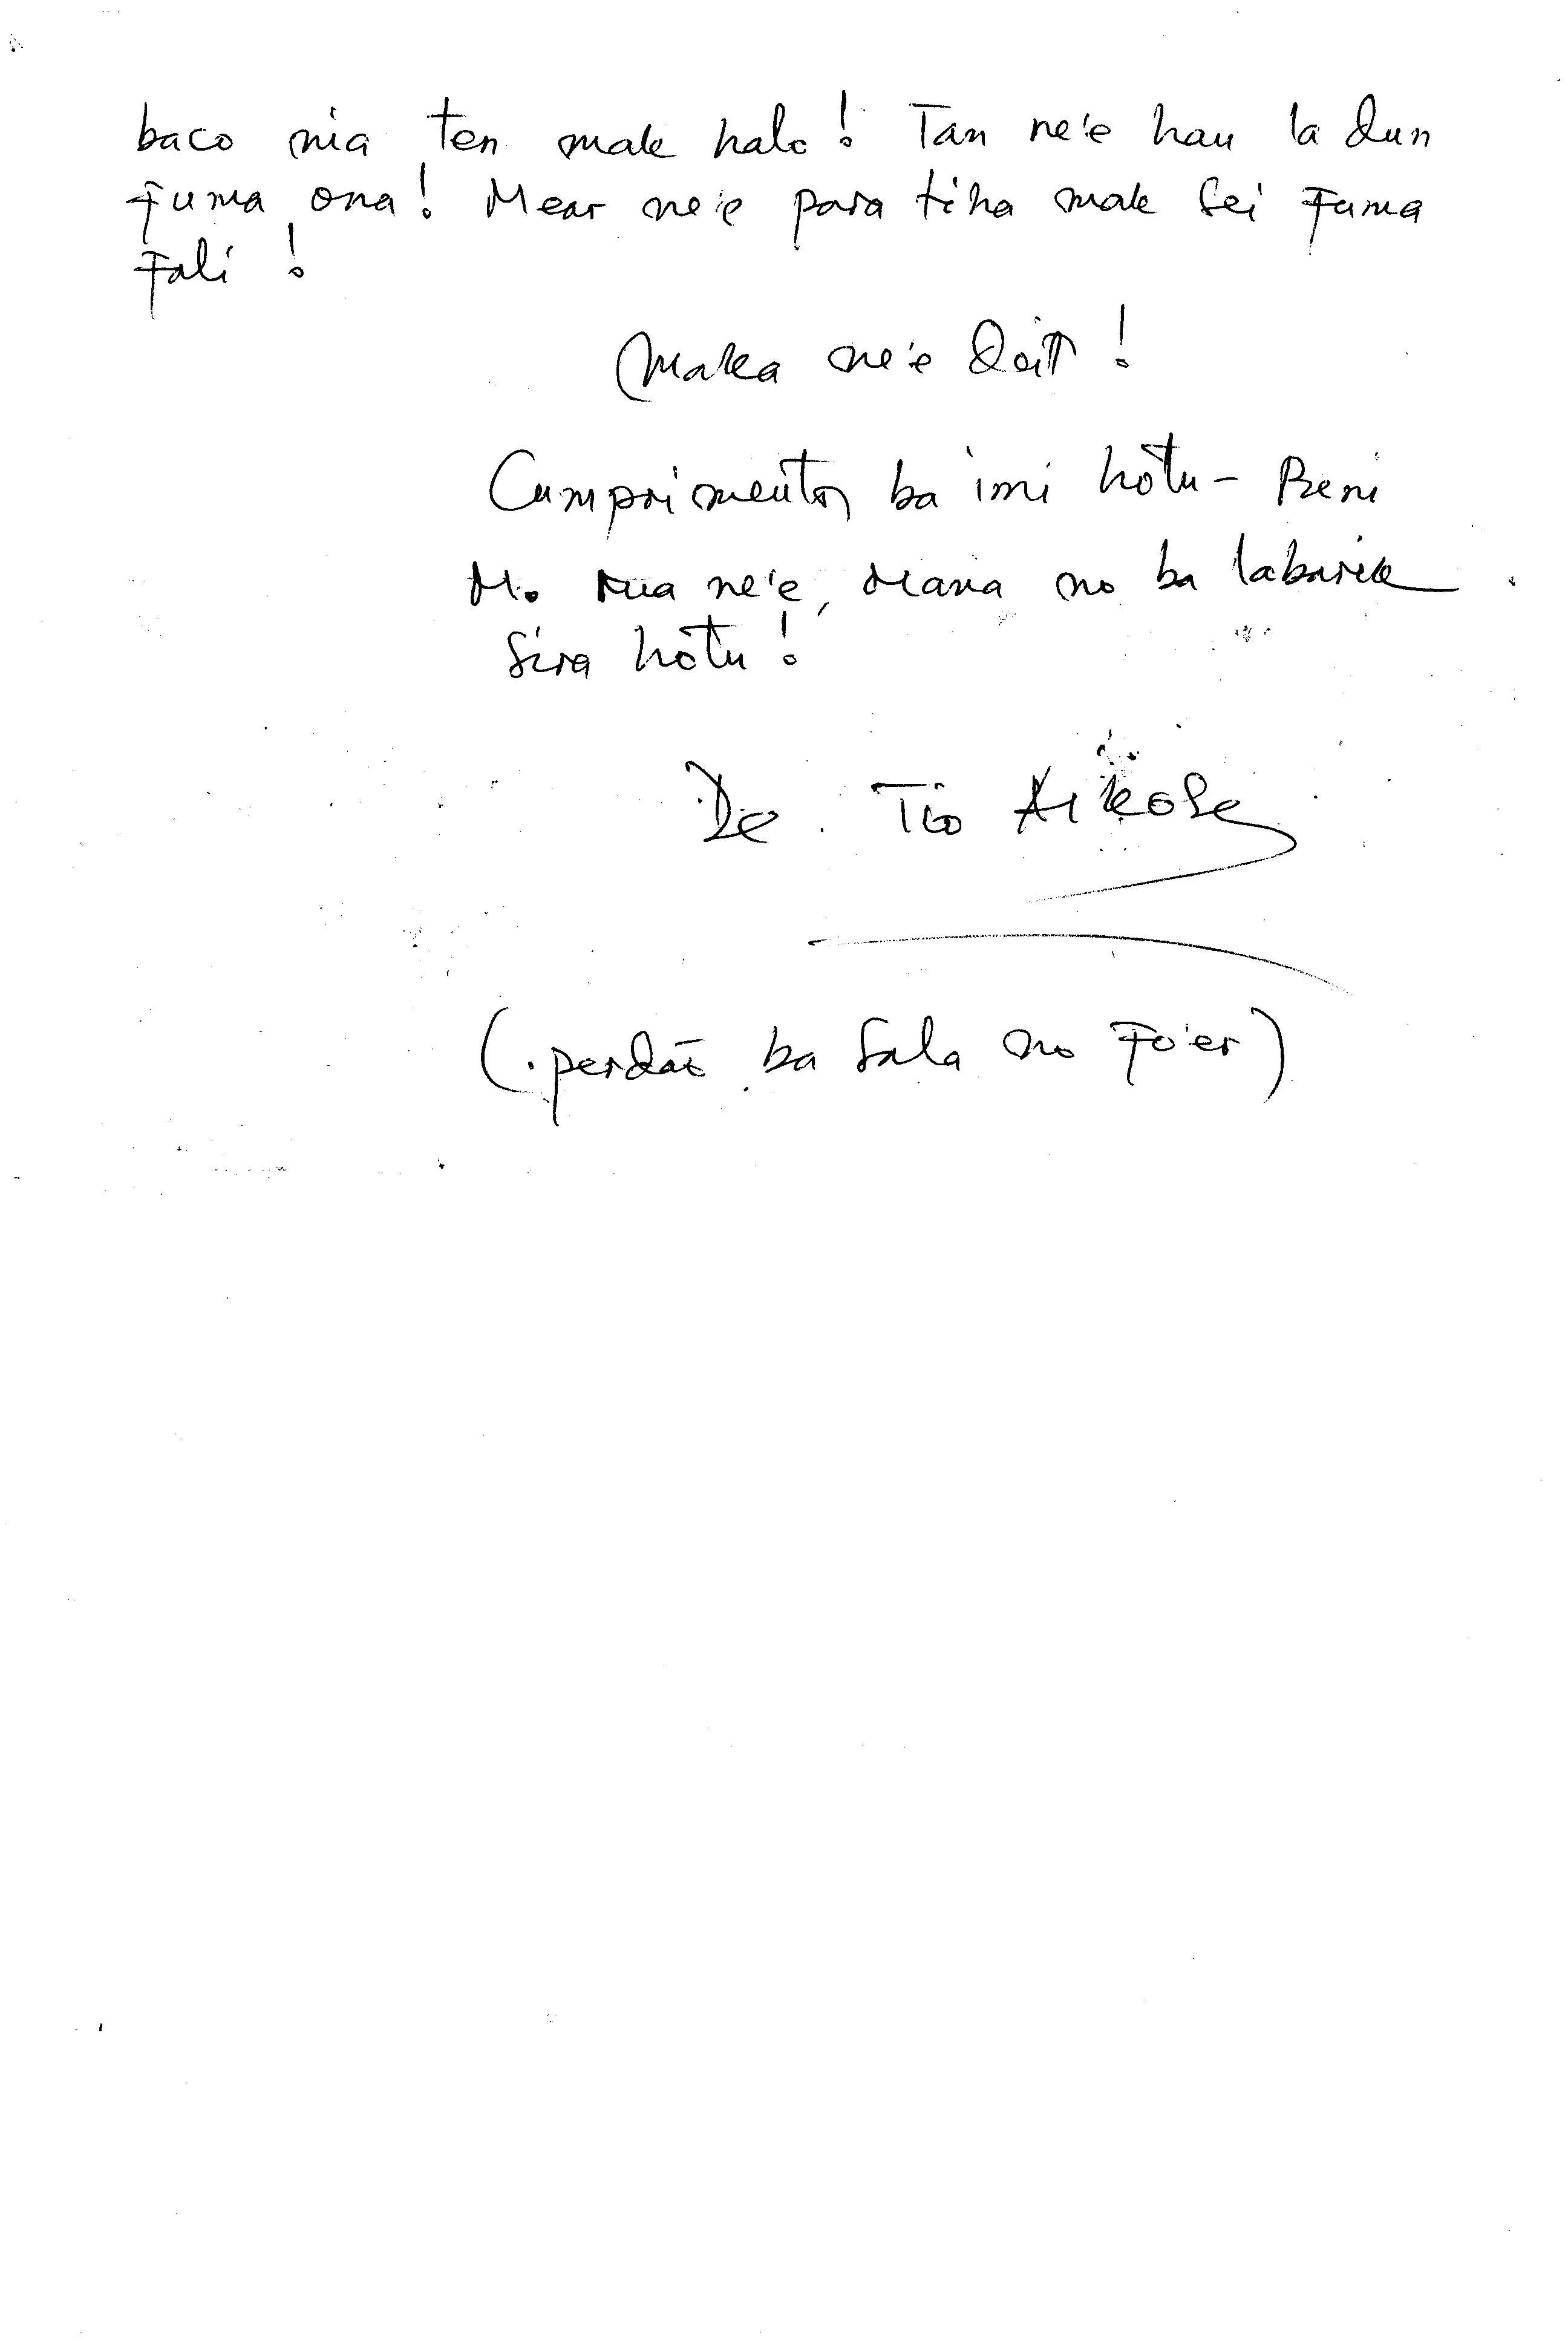 baco nia ten mak halo! Tan ne'e hau la dun
fuma ona! Mear ne'e para tiha mak sei fuma
fali!
Maka ne'e deit!
Cumprimentos ba imi hotu - Beni
M. rua ne'e, Mana no ba labarik
sira hotu!
De Tio
(perdão ba sala no fo'er)